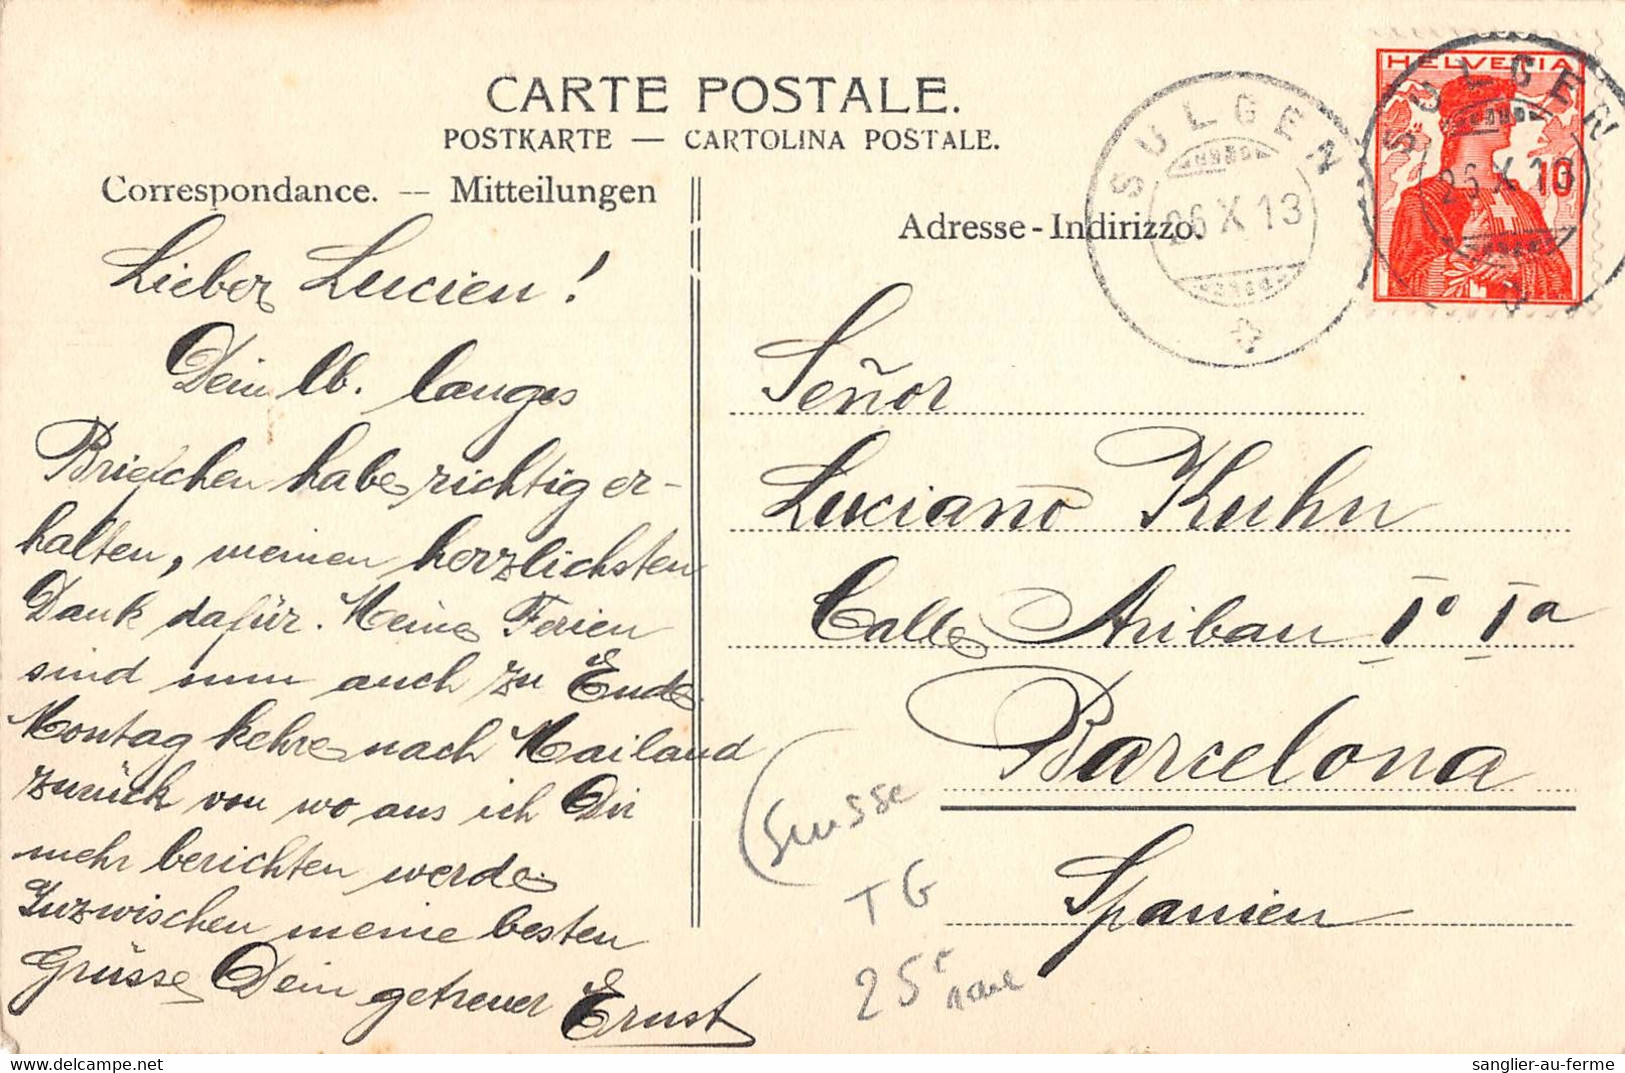 CARTE POSTALE.
POSTKARTE — CARTOLINA POSTALE.
Correspondance. — Mitteilungen
Adresse - Indirizzo.
HELVETIA
10
SULGEN
26 X 13
SULGEN
26 X 13
Lieber Lucien!
Dein lb. langes
Briefchen habe richtig er-
halten, meinen herzlichsten
Dank dafür. Meine Ferien
sind nun auch zu Ende.
Montag kehre nach Mailand
zurück von wo aus ich Dir
mehr berichten werde
Inzwischen meine besten
Grüsse Dein getreuer Ernst
Señor
Luciano Kuhn
Calle Aribau 1° 1a
Barcelona
Spanien
(Suisse
TG
25F
rare
delcampe.net
sanglier-au-ferme